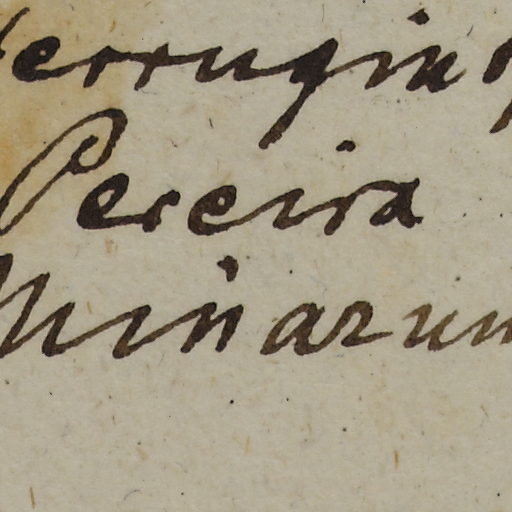 ferrugino
Pereira
Minarum